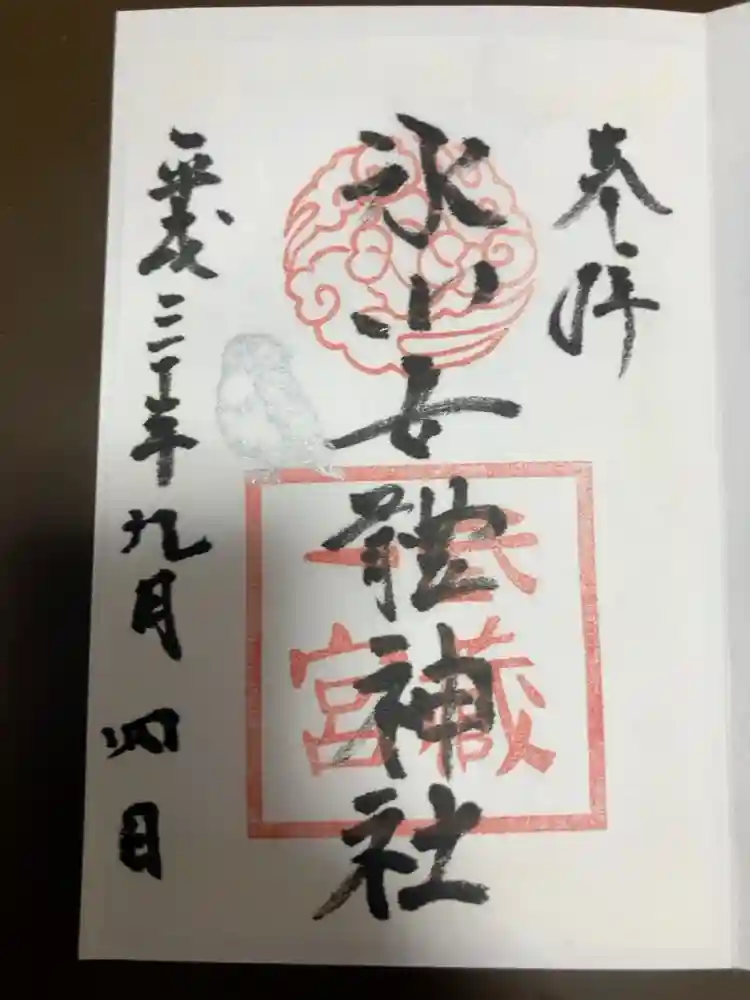 奉拝
氷川女體神社
平成三十年九月四日
武蔵
一宮